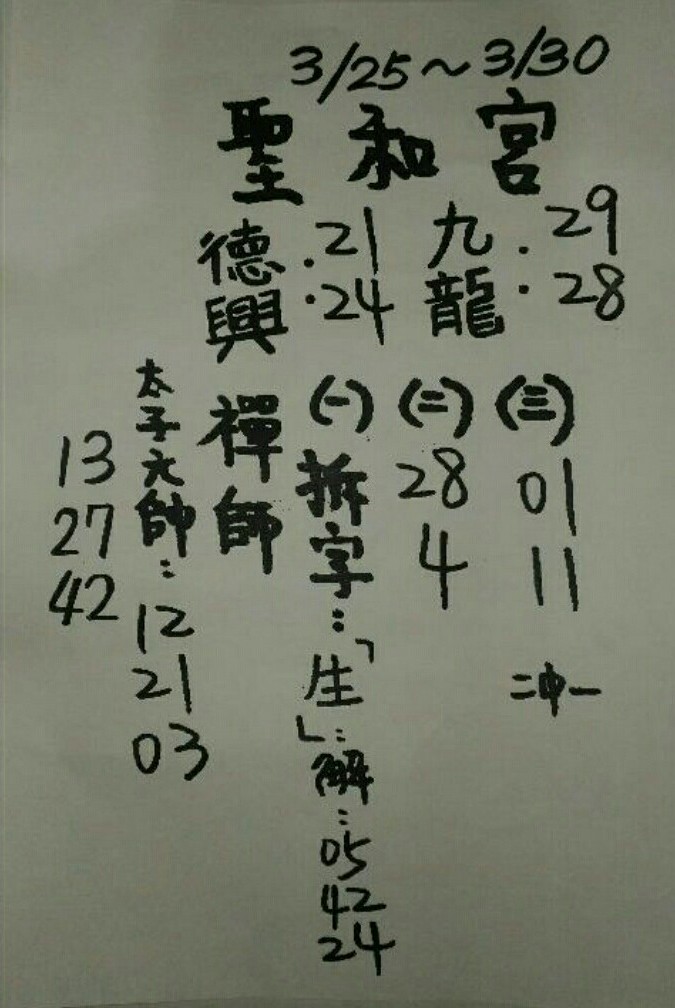 3/25～3/30
聖和宮
九龍．29．28
德興．21．24
(三)
01
11
二冲一
(二)
28
4
(一)
拆字：「生」：解：05 42 24
禪師
太子元帥：12 21 03
13
27
42